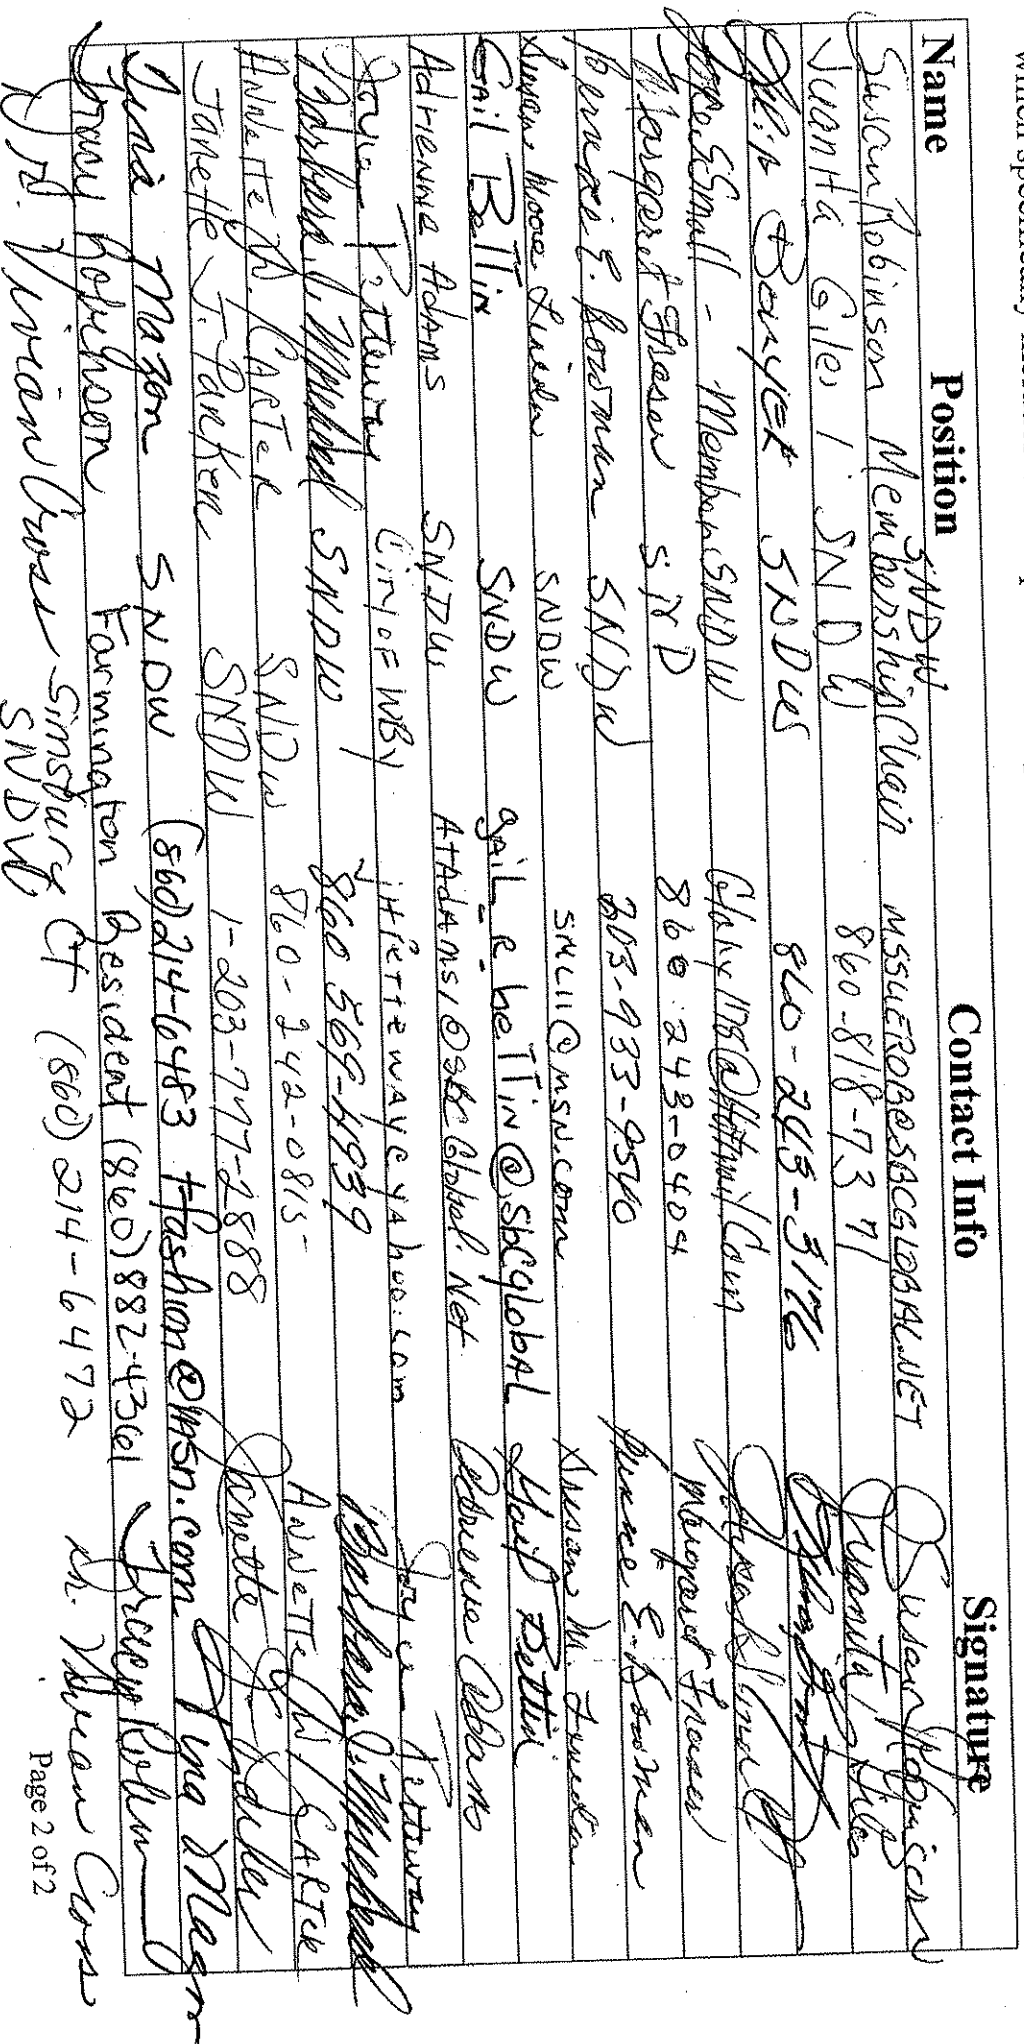 when specifically
Name Position Contact Info Signature
Susan Robinson SNDW Membership Chair MSSUEROB@SBCGLOBAL.NET Susan Robinson
Juanita Giles SNDW 860-818-7371 Juanita Giles
Bowyer SNDW 860-243-3176
Small - Member SNDW @Hotmail.Com
Margaret Fraser SND 860-243-0404 Margaret Fraser
Bernice E. Bowman SNDW 203-933-9540 Bernice E. Bowman
Susan Moore SNDW SMLII@msn.com Susan M.
Gail BeTTin SNDW gail_e_beTTin@sbcglobal Gail Bettin
Adrienne Adams SNDW ATAdams1@SBCGlobal.Net Adrienne Adams
Joyce Petteway City of WBY jhpetteway@yahoo.com Joyce Petteway
Barbara J. SNDW 860 569-4939 Barbara J.
ANNeTTe W. CARTeR SNDW 860-242-0815 ANNeTTe W. CARTeR
Janette J. Parker SNDW 1-203-777-2888 Janette J. Parker
Tina Mazon SNDW (860)214-6483 tfashion@msn.com Tina Mazon
Tracy Robinson Farmington Resident (860)882-4361 Tracy Robinson
Dr. Vivian Cross Simsbury Ct SNDW (860)214-6472 Dr. Vivian Cross
Page 2 of 2